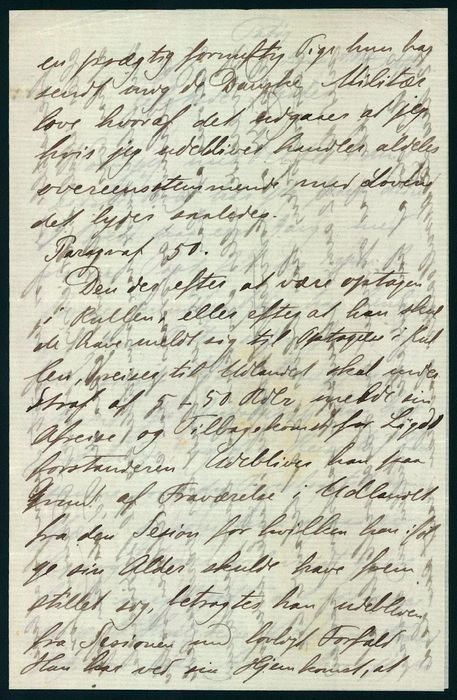 en prægtig fornuftig Pige hun har
sendt mig de Danske Militær
love hvoraf det udgaaer at jeg
hvis jeg udebliver handler aldeles
overeensstemmende med Loven
det lyder saaledes.
Paragraf 50.
Den der efter at være optagen
i Rullen, eller efter at han skul
de have meldt sig til Optagelse i Rul
len, reiser til Udlandet skal under
Straf af 5-50 Rdlr melde sin
Afreise og Tilbagekomst for Lægds
forstanderen Udebliver han paa
Grund af Fraværelse i Udlandet
fra den Sesion for hvilken han iføl
ge sin Alder skulde have frem
stillet sig, betragtes han udebleven
fra Sesionen med lovligt Forfald
Han har ved sin Hjemkomst, at